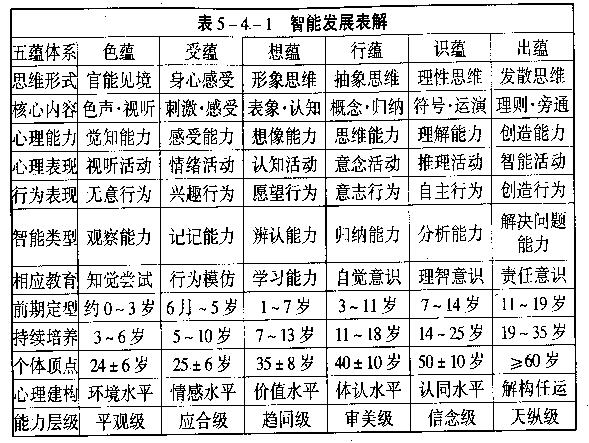 表5-4-1 智能发展表解
五蕴体系 色蕴 受蕴 想蕴 行蕴 识蕴 出蕴
思维形式 官能见境 身心感受 形象思维 抽象思维 理性思维 发散思维
核心内容 色声·视听 刺激·感受 表象·认知 概念·归纳 符号·运演 理则·旁通
心理能力 觉知能力 感受能力 想像能力 思维能力 理解能力 创造能力
心理表现 视听活动 情绪活动 认知活动 意念活动 推理活动 智能活动
行为表现 无意行为 兴趣行为 愿望行为 意志行为 自主行为 创造行为
智能类型 观察能力 记记能力 辨认能力 归纳能力 分析能力 解决问题
能力
相应教育 知觉尝试 行为模仿 学习能力 自觉意识 理智意识 责任意识
前期定型 约0~3岁 6月~5岁 1~7岁 3~11岁 7~14岁 11~19岁
持续培养 3~6岁 5~10岁 7~13岁 11~18岁 14~25岁 19~35岁
个体顶点 24±6岁 25±6岁 35±8岁 40±10岁 50±10岁 ≥60岁
心理建构 环境水平 情感水平 价值水平 体认水平 认同水平 解构任运
能力层级 平观级 应合级 趋同级 审美级 信念级 天纵级